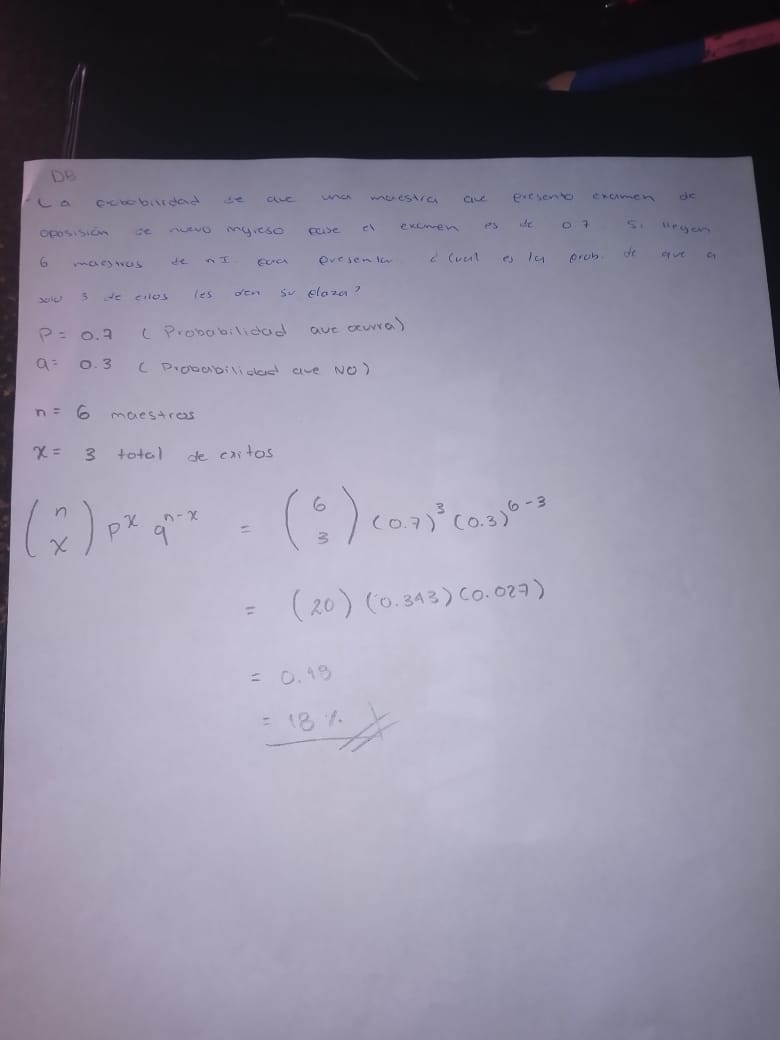 DB
La probabilidad de que una maestra que presento examen de
oposisión de nuevo ingreso pase el examen es de 0.7 Si llegan
6 maestras de n I. para presentar ¿ Cual es la prob. de que a
solo 3 de ellos les den su plaza?
P = 0.7 ( Probabilidad que ocurra)
q = 0.3 ( Probabilidad que NO)
n = 6 maestras
x = 3 total de exitos
(n x) p^x q^n-x = (6 3) (0.7)^3 (0.3)^6-3
= (20) (0.343) (0.027)
= 0.18
= 18 %